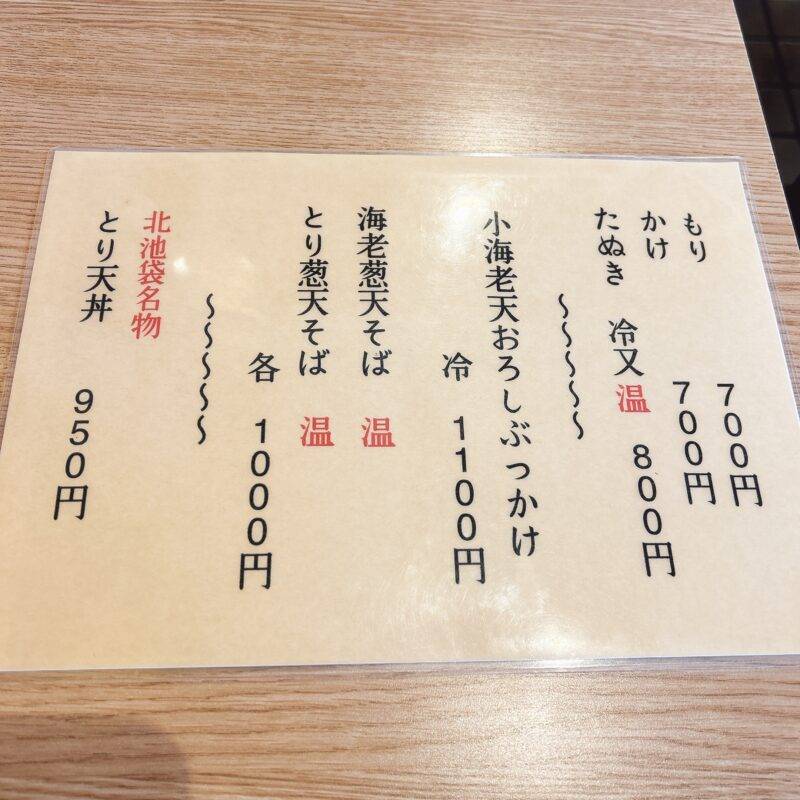 もり 700円
かけ 700円
たぬき 冷又温 800円
〜〜〜〜〜
小海老天おろしぶっかけ
冷 1100円
海老葱天そば 温
とり葱天そば 温
各 1000円
〜〜〜〜〜
北池袋名物
とり天丼 950円